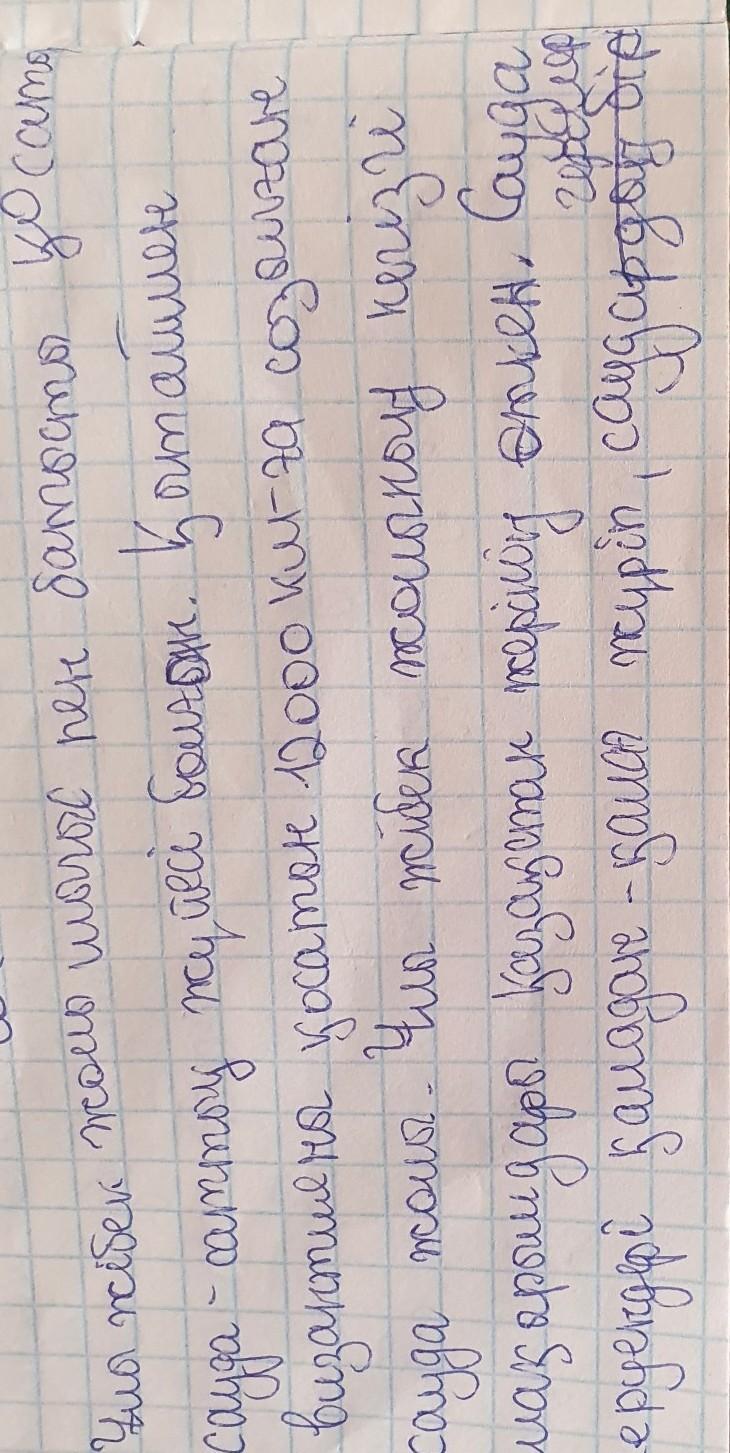 Ұлы жібек жолы шығыс пен батысты қосаты
сауда-саттық жүйесі болған. Қытаймен
византияны қосатын 12000 км-ға созылған
сауда жолы. Ұлы жібек жолының негізгі
тақарымдары Қазақстан жерінің өткен. Сауда
еруендері қаладан-қалаға жүріп, саудардың бір